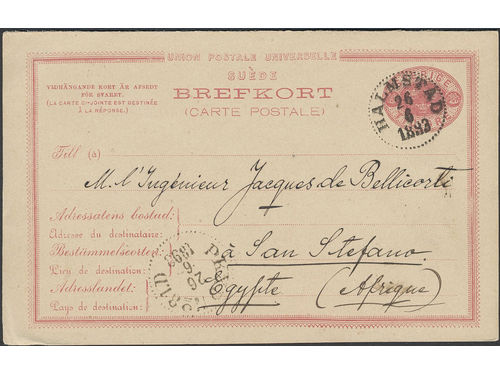 UNION POSTALE UNIVERSELLE
SUÈDE
BREFKORT
(CARTE POSTALE)
VIDHÄNGANDE KORT ÄR AFSEDT
FÖR SVARET.
(LA CARTE CI-JOINTE EST DESTINÉE
À LA RÉPONSE.)
HALMSTAD
26
6
1893
Till (à)
M. l'Ingénieur Jacques de Bellicorti
Adressatens bostad:
Adresse du destinataire:
Bestämmelseorten:
Lieu de destination:
à San Stefano
Adresslandet:
Pays de destination:
Egypte (Afrique)
26
6
1893